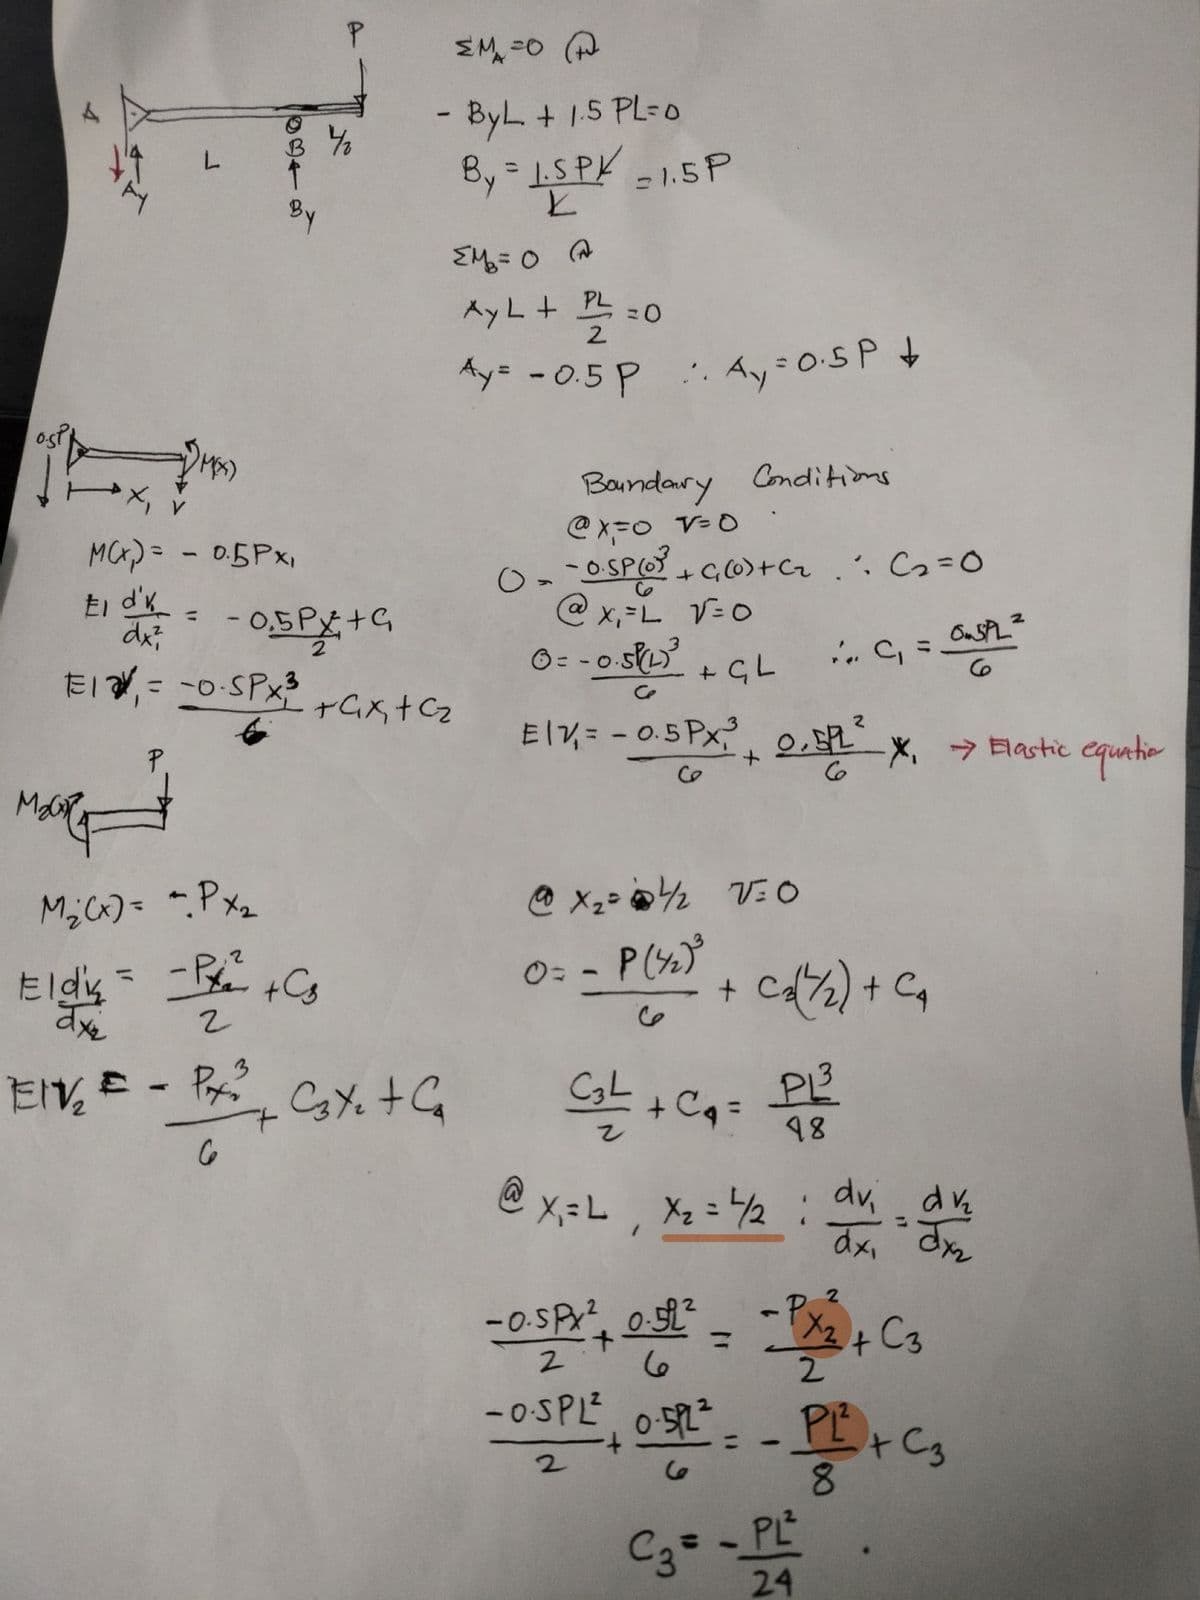 P
A
L
B
L/2
Ay
By
ΣM_A=0
- ByL + 1.5 PL=0
By = 1.5PL/L = 1.5P
ΣM_B=0
AyL + PL/2 =0
Ay= -0.5P ∴ Ay=0.5P ↓
0.5P
M(x)
x₁ V
M(x₁)= - 0.5Px₁
EI dV₁/dx₁ = -0.5Px₁²/2 + C₁
EIV₁= -0.5Px₁³/6 +C₁x₁+C₂
Boundary Conditions
@ x₁=0 V=0
0 = -0.5P(0)³/6 + C₁(0)+C₂ ∴ C₂=0
@ x₁=L V=0
0= -0.5P(L)³/6 + C₁L ∴ C₁ = 0.5PL²/6
EIV₁= -0.5Px₁³/6 + 0.5PL²/6 x₁ → Elastic equation
P
M₂(x)
M₂(x)= -Px₂
EI dV₂/dx₂ = -Px₂²/2 +C₃
EIV₂ = - Px₂³/6 + C₃x₂ + C₄
@ x₂= L/2 V=0
0= - P(L/2)³/6 + C₃(L/2) + C₄
C₃L/2 + C₄ = PL³/48
@ x₁=L , x₂ = L/2 : dv₁/dx₁ = dv₂/dx₂
-0.5Px²/2 + 0.5L²/6 = -Px₂²/2 + C₃
-0.5PL²/2 + 0.5PL²/6 = - PL²/8 + C₃
C₃= - PL²/24 .